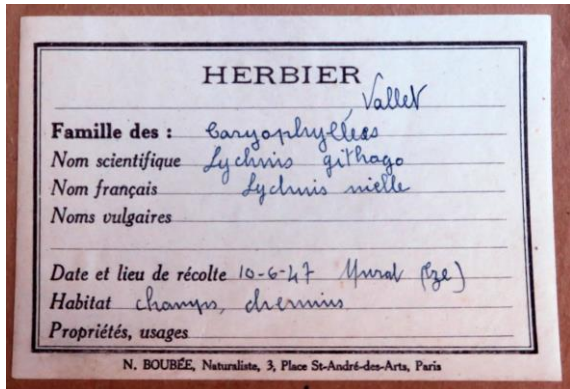 HERBIER
Vallet
Famille des : Caryophyllées
Nom scientifique Lychnis githago
Nom français Lychnis nielle
Noms vulgaires
Date et lieu de récolte 10-6-47
Habitat champs, chemins
Propriétés, usages
N. BOUBÉE, Naturaliste, 3, Place St-André-des-Arts, Paris